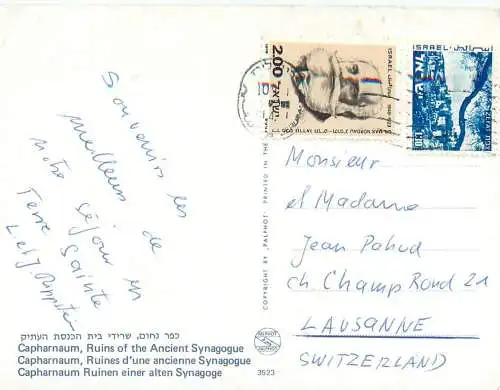 Souvenirs les
meilleurs de
notre séjour en
Terre Sainte
L. et J.
כפר נחום, שרידי בית הכנסת העתיק
Capharnaum, Ruins of the Ancient Synagogue
Capharnaum, Ruines d'une ancienne Synagogue
Capharnaum Ruinen einer alten Synagoge
3523
PALPHOT
COPYRIGHT BY "PALPHOT" PRINTED IN THE
2.00
ISRAEL
ישראל
ISRAEL
ישראל
10
Monsieur
et Madame
Jean Pahud
ch. Champ Rond 21
LAUSANNE
SWITZERLAND